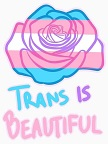 TRANS IS
BEAUTIFUL